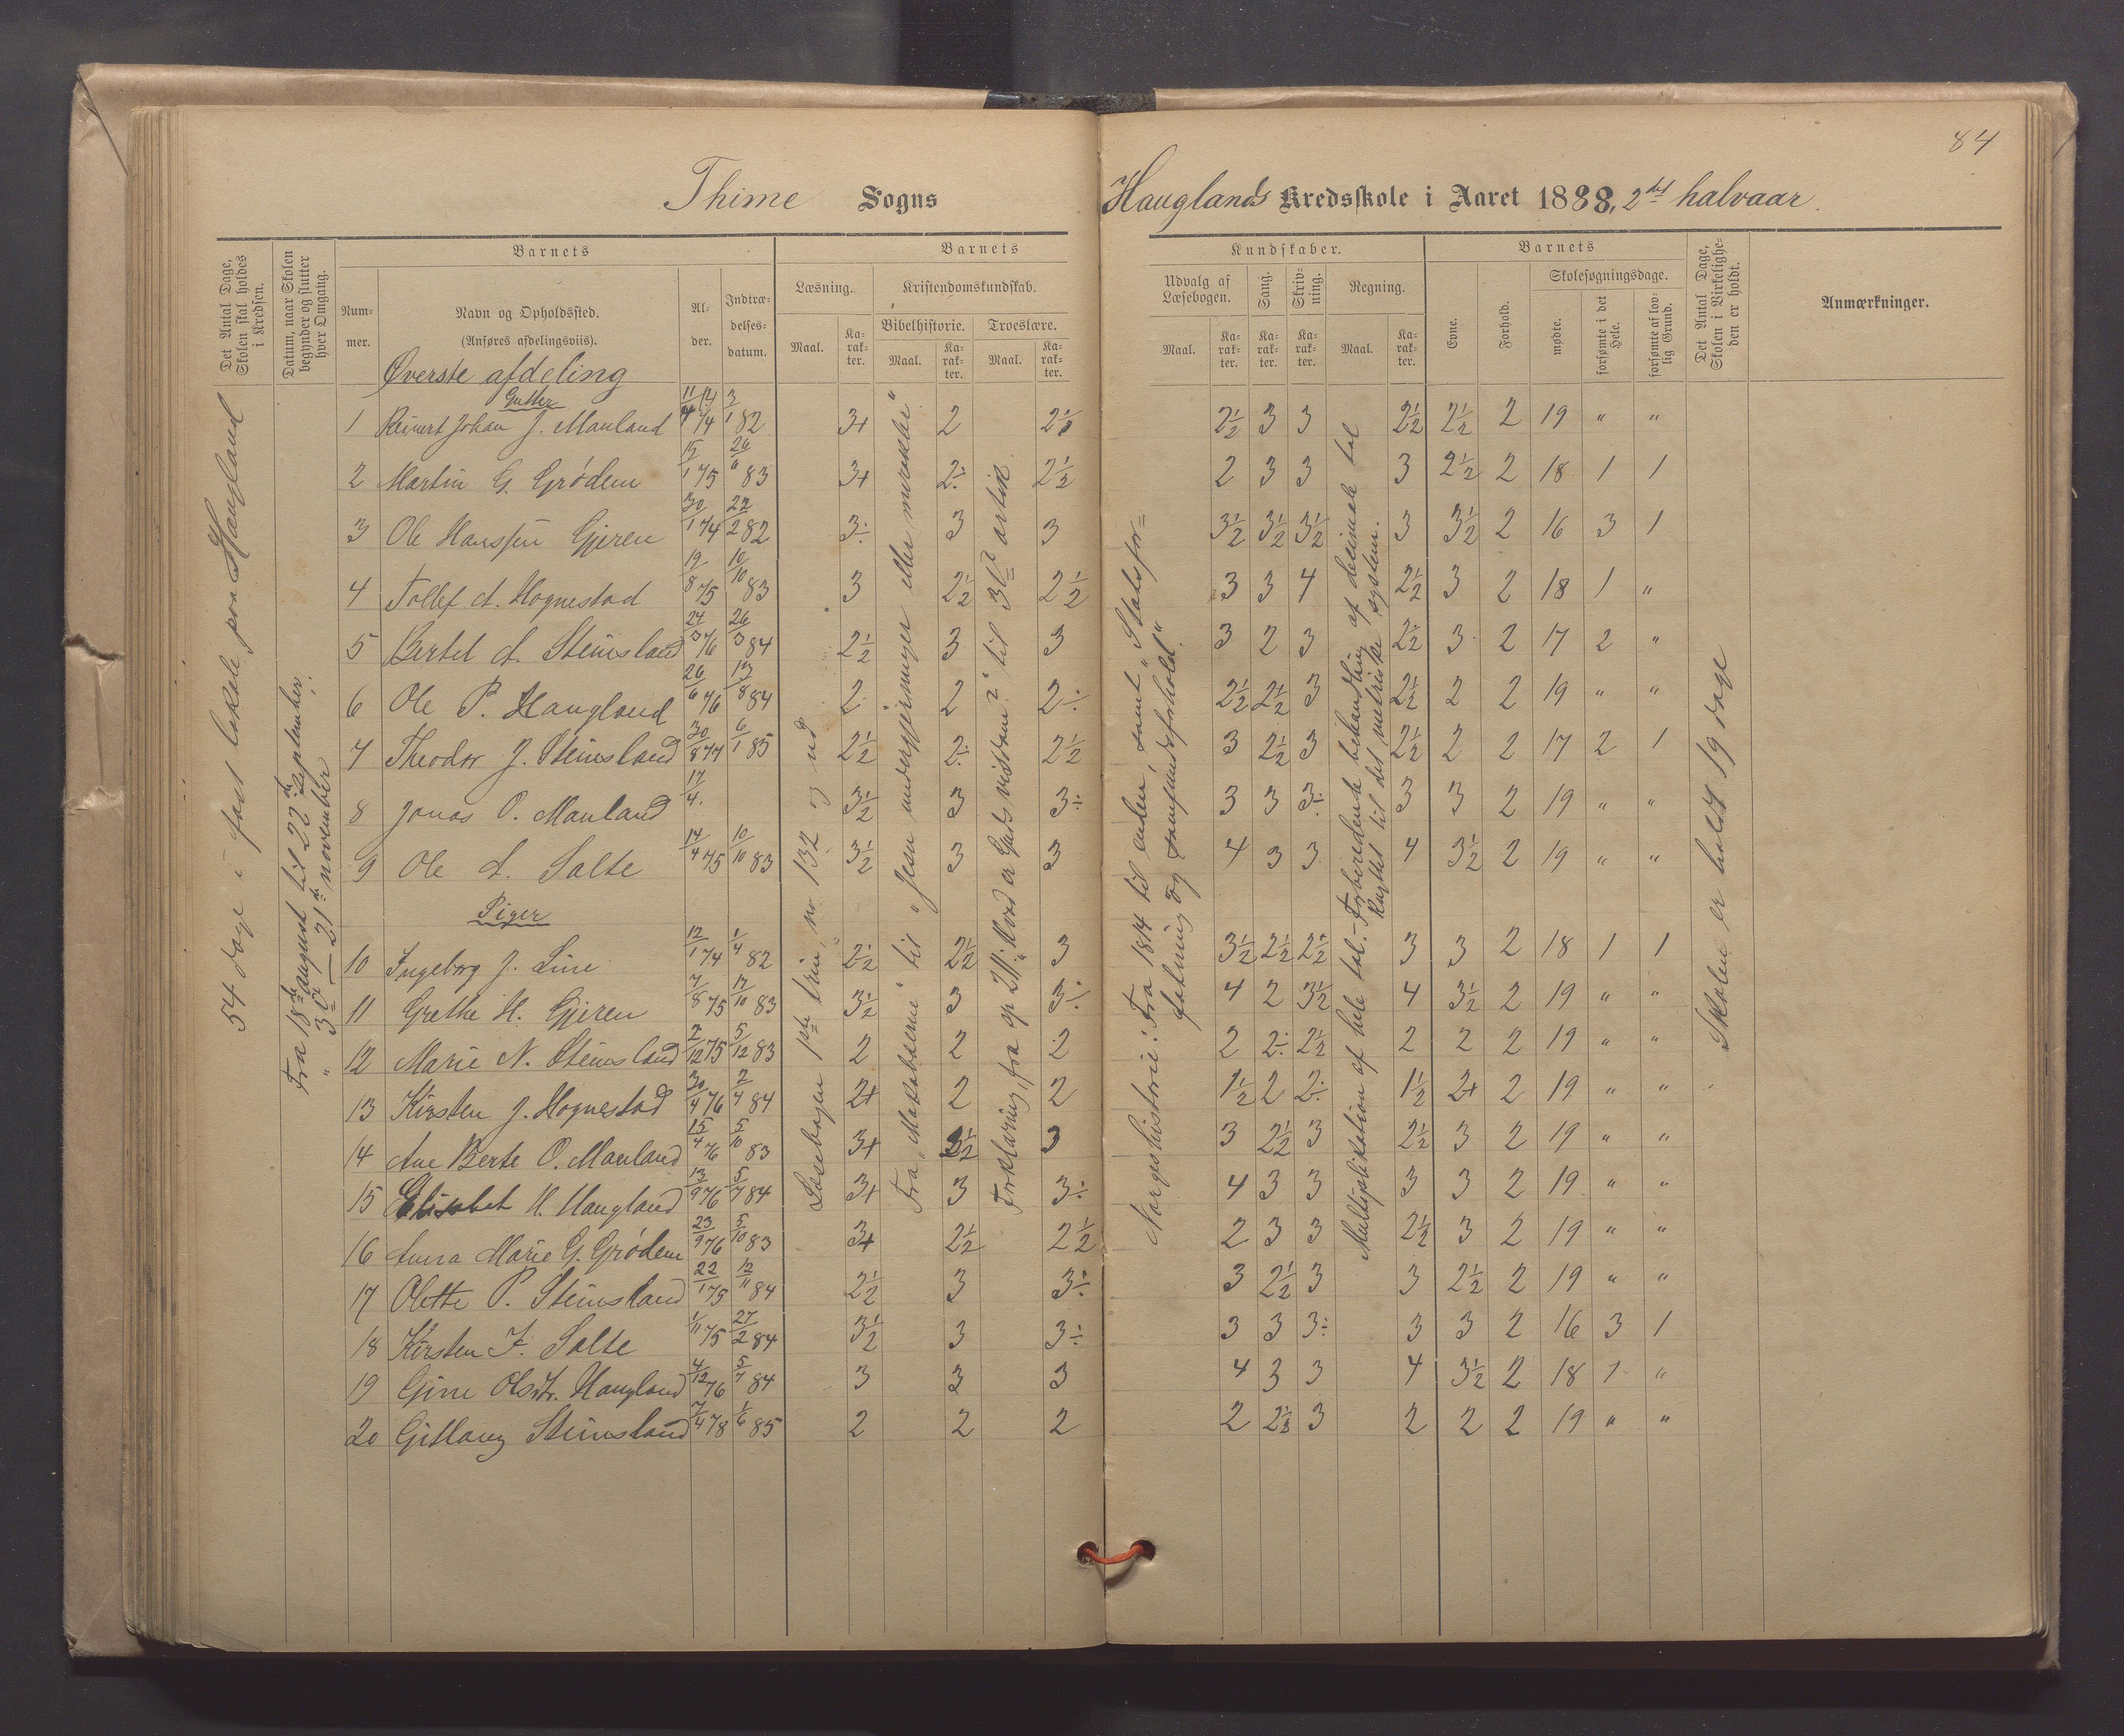 84
Thime Sogns
Hauglands Kredsskole i Aaret 1888, 2det halvaar.
Det Antal Dage, Skolen skal holdes i Kredsen.
Datum, naar Skolen begynder og slutter hver Omgang.
Barnets
Num-mer.
Navn og Opholdssted.
(Anføres afdelingsviis).
Al-der.
Indtræ-delses-datum.
Barnets
Læsning.
Maal.
Ka-rak-ter.
Kristendomskundskab.
Bibelhistorie.
Maal.
Ka-rak-ter.
Troeslære.
Maal.
Ka-rak-ter.
Kundskaber.
Udvalg af Læsebogen.
Maal.
Ka-rak-ter.
Sang.
Ka-rak-ter.
Skriv-ning.
Ka-rak-ter.
Regning.
Maal.
Ka-rak-ter.
Barnets
Evne.
Forhold.
Skolesøgningsdage.
mødte.
forsømte i det Hele.
forsømte af lov-lig Grund.
Det Antal Dage, Skolen i Virkelighe-den er holdt.
Anmærkninger.
54 dage i fast lokale paa Haugland
Fra 18de august til 22de september.
" 3die — 21de november
Læsebogen 1ste trin, no 132 og ud
Fra "Makabæerne" til "Jesu undergjerninger eller mirakler"
Forklaring, fra sp 211: til 3die artik
Norgeshistorie: Fra 1814 til enden, samt "Statsfor=
fatning og samfundsforhold".
Multiplikation af hele tal. – Forberedende behandling af decimale tal
knyttet til det metriske system.
Skolen er holdt 19 dage
Øverste afdeling
Gutter
1 Reinert Johan J. Mauland 3/1 82 3+ 2 2½ 2½ 3 3 2½ 2½ 2 19 " "
2 Martin G. Grødem 15/1 75 26/6 83 3+ 2÷ 2½ 2 3 3 3 2½ 2 18 1 1
3 Ole Hanssen Gjeren 30/1 74 22/2 82 3÷ 3 3 3½ 3½ 3½ 3 3½ 2 16 3 1
4 Tollef A. Hognestad 19/8 75 10/10 83 3 2½ 2½ 3 3 4 2½ 3 2 18 1 "
5 Bertel A. Steinsland 24/3 76 26/3 84 2½ 3 3 3 2 3 2½ 3 2 17 2 "
6 Ole P. Haugland 26/6 76 13/8 84 2 2 2÷ 2½ 2½ 3 2½ 2 2 19 " "
7 Theodor J. Steinsland 30/8 77 6/1 85 2½ 2÷ 2½ 3 2½ 3 2½ 2 2 17 2 1
8 Jonas O. Mauland 17/4. 3½ 3 3÷ 3 3 3÷ 3 3 2 19 " "
9 Ole A. Salte 14/4 75 10/10 83 3½ 3 3 4 3 3 4 3½ 2 19 " "
Piger
10 Ingeborg J. Line 12/1 74 1/4 82 2½ 2½ 3 3½ 2½ 2½ 3 3 2 18 1 1
11 Grethe H. Gjeren 7/8 75 17/10 83 3½ 3 3÷ 4 2 3½ 4 3½ 2 19 " "
12 Marie N. Steinsland 2/12 75 5/12 83 2 2 2 2 2÷ 2½ 2 2 2 19 " "
13 Kirsten J. Hognestad 30/4 76 2/4 84 2+ 2 2 1½ 2 2÷ 1½ 2+ 2 19 " "
14 Ane Berte O. Mauland 15/4 76 5/10 83 3+ 2½ 3 3 2½ 3 2½ 3 2 19 " "
15 Elisabet H. Haugland 13/9 76 5/7 84 3+ 3 3÷ 4 3 3 3 3 2 19 " "
16 Anna Marie G. Grødem 23/9 76 5/10 83 3+ 2½ 2½ 2 3 3 2½ 3 2 19 " "
17 Olette P. Steinsland 22/1 75 12/11 84 2½ 3 3÷ 3 2½ 3 3 2½ 2 19 " "
18 Kirsten F. Salte 1/11 75 27/2 84 3½ 3 3÷ 3 3 3÷ 3 3 2 16 3 1
19 Gine Olsdtr. Haugland 4/12 76 5/7 84 3 3 3 4 3 3 4 3½ 2 18 1 "
20 Gitlaug Steinsland 7/4 78 1/6 85 2 2 2 2 2½ 3 2 2 2 19 " "